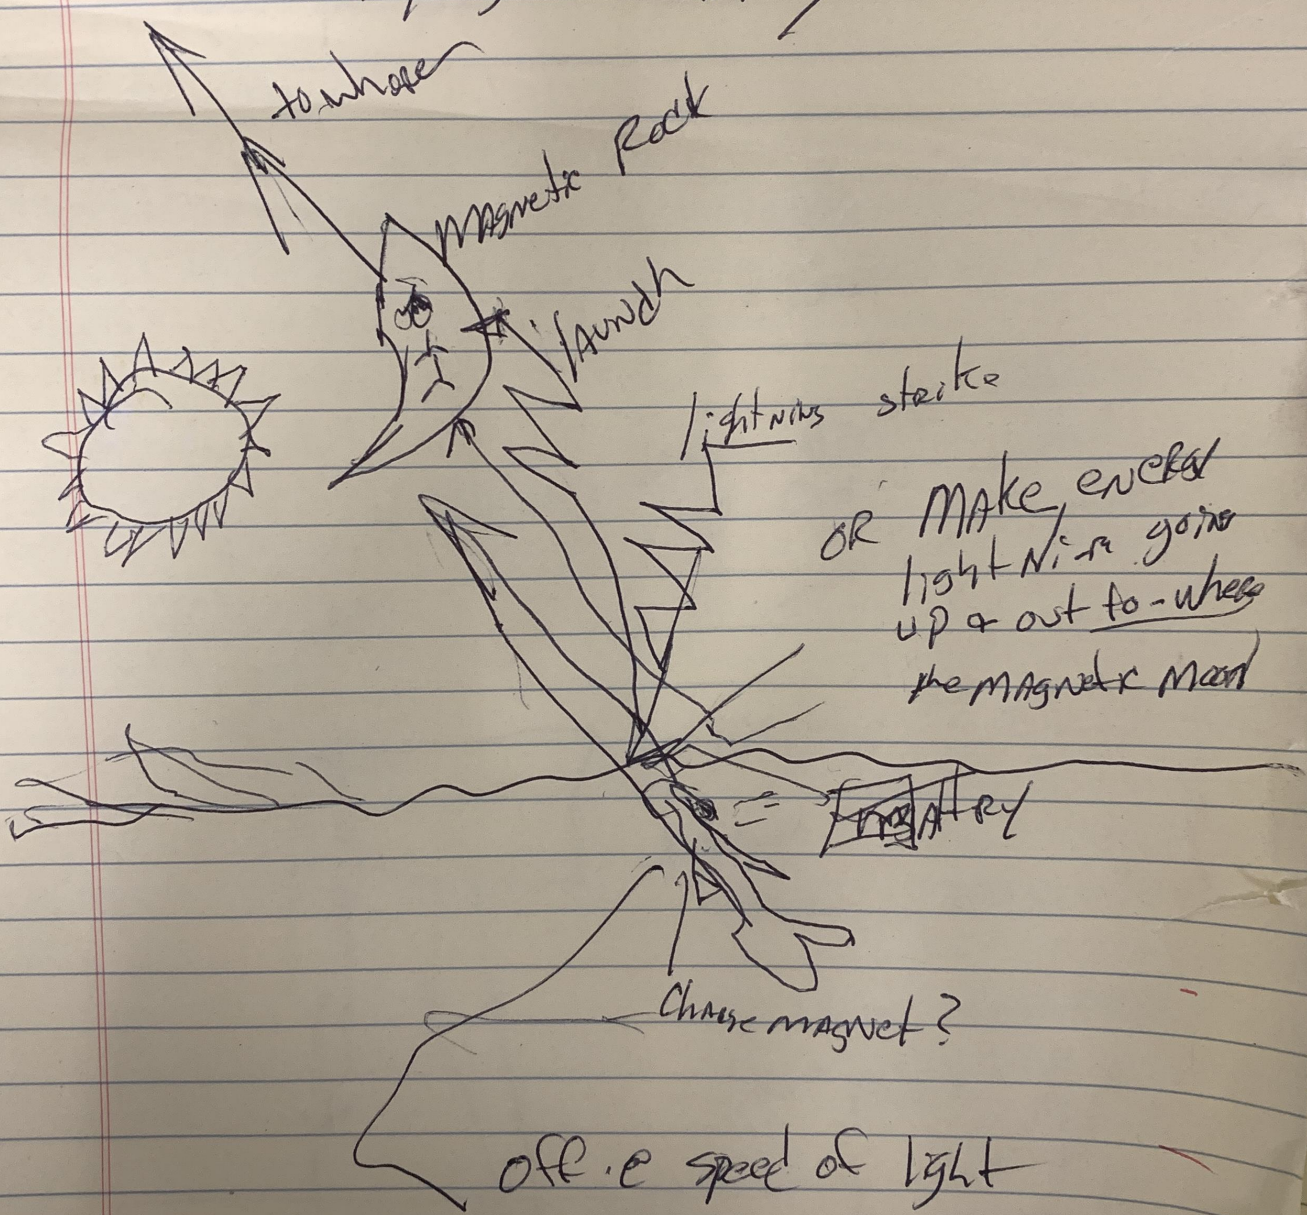 to-where
MAgnetic Rock
lAUNch
lightNiNg strike
OR MAke eNeRgy
lightNiNg going
up & out to-where
the MAgNetic MooN
ChARge MAgNet?
off · e speed of light